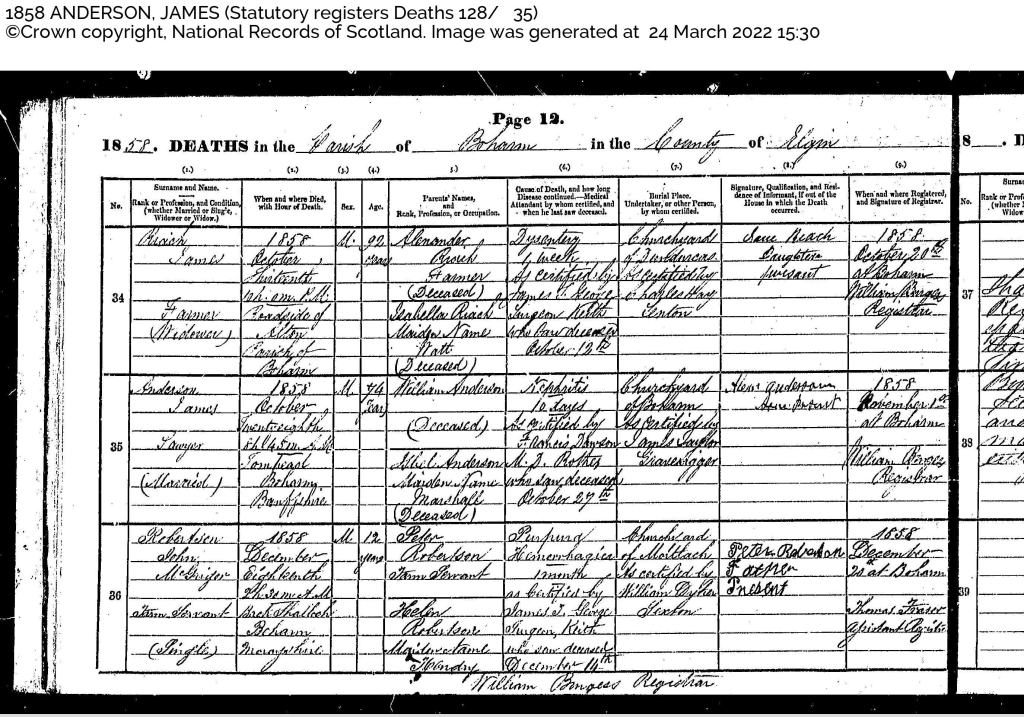 1858 ANDERSON, JAMES (Statutory registers Deaths 128/ 35)
©Crown copyright, National Records of Scotland. Image was generated at 24 March 2022 15:30
Page 12.
1858. DEATHS in the Parish of Boharm in the County of Elgin
(1.) (2.) (3.) (4.) 5.) (6.) (7.) (8.) (9.)
No.
Surname and Name.
Rank or Profession, and Condition,
(whether Married or Single,
Widower or Widow.)
When and where Died,
with Hour of Death.
Sex.
Age.
Parents' Names,
and
Rank, Profession, or Occupation.
Cause of Death, and how long
Disease continued.—Medical
Attendant by whom certified, and
when he last saw deceased.
Burial Place.
Undertaker, or other Person,
by whom certified.
Signature, Qualification, and Resi-
dence of Informant, if out of the
House in which the Death
occurred.
When and where Registered,
and Signature of Registrar.
34
Riach
James
Farmer
(Widower)
1858
October
Thirteenth
P.M.
Roadside of
Alton
Parish of
Boharm
M.
92
years
Alexander
Riach
Farmer
(Deceased)
Isabella Riach
Maiden Name
Watt
(Deceased)
Dysentery
1 week
As certified by
James T. George
Surgeon Keith
who saw deceased
October 12th
Churchyard
of Dundurcas
As certified by
Charles Hay
Sexton
Riach
Daughter
present
1858
October 20th
at Boharm
William Burgess
Registrar
35
Anderson
James
Sawyer
(Married)
1858
October
Twenty eighth
8h. 45m. A.M.
Boharm
Banffshire
M.
74
Years
William Anderson
(Deceased)
Anderson
Maiden Name
Marshall
(Deceased)
Nephritis
10 days
As certified by
Francis Dawson
M. D. Rothes
who saw deceased
October 27th
Churchyard
of Boharm
As certified by
James Taylor
Gravedigger
Anderson
1858
November 1st
at Boharm
William Burgess
Registrar
36
Robertson
John
McGrigor
Farm Servant
(Single)
1858
December
Eighteenth
30m A.M
Boharm
Morayshire
M
12
years
Peter
Robertson
Farm Servant
Helen
Robertson
Maiden Name
Hendry
Purpura
Hemorrhagica
1 month
as certified by
James T. George
Surgeon, Keith
who saw deceased
December 14th
Churchyard
of Mortlach
As certified by
William
Sexton
Peter Robertson
Father
Present
1858
December
at Boharm
Thomas Fraser
Assistant Registrar
William Burgess Registrar
8
No.
37
38
39